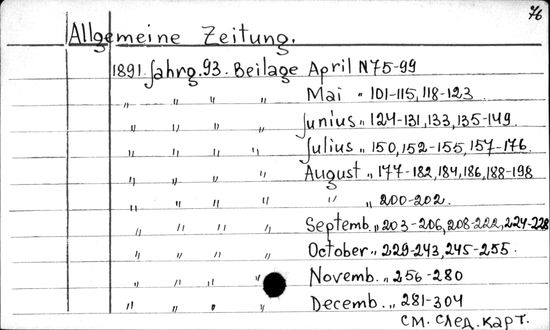 76
Allgemeine Zeitung.
1891. Jahrg. 93. Beilage April N 75-99
„ „ „ „ Mai „ 101-115, 118-123
„ „ „ „ Junius „ 124-131, 133, 135-149.
„ „ „ „ Julius „ 150, 152-155, 157-176.
„ „ „ „ August „ 177-182, 184, 186, 188-198
„ „ „ „ „ „ 200-202.
„ „ „ „ Septemb. „ 203-206, 208-222, 224-228
„ „ „ „ October „ 229-243, 245-255.
„ „ „ „ Novemb. „ 256-280
„ „ „ „ Decemb. „ 281-304
см. след. карт.